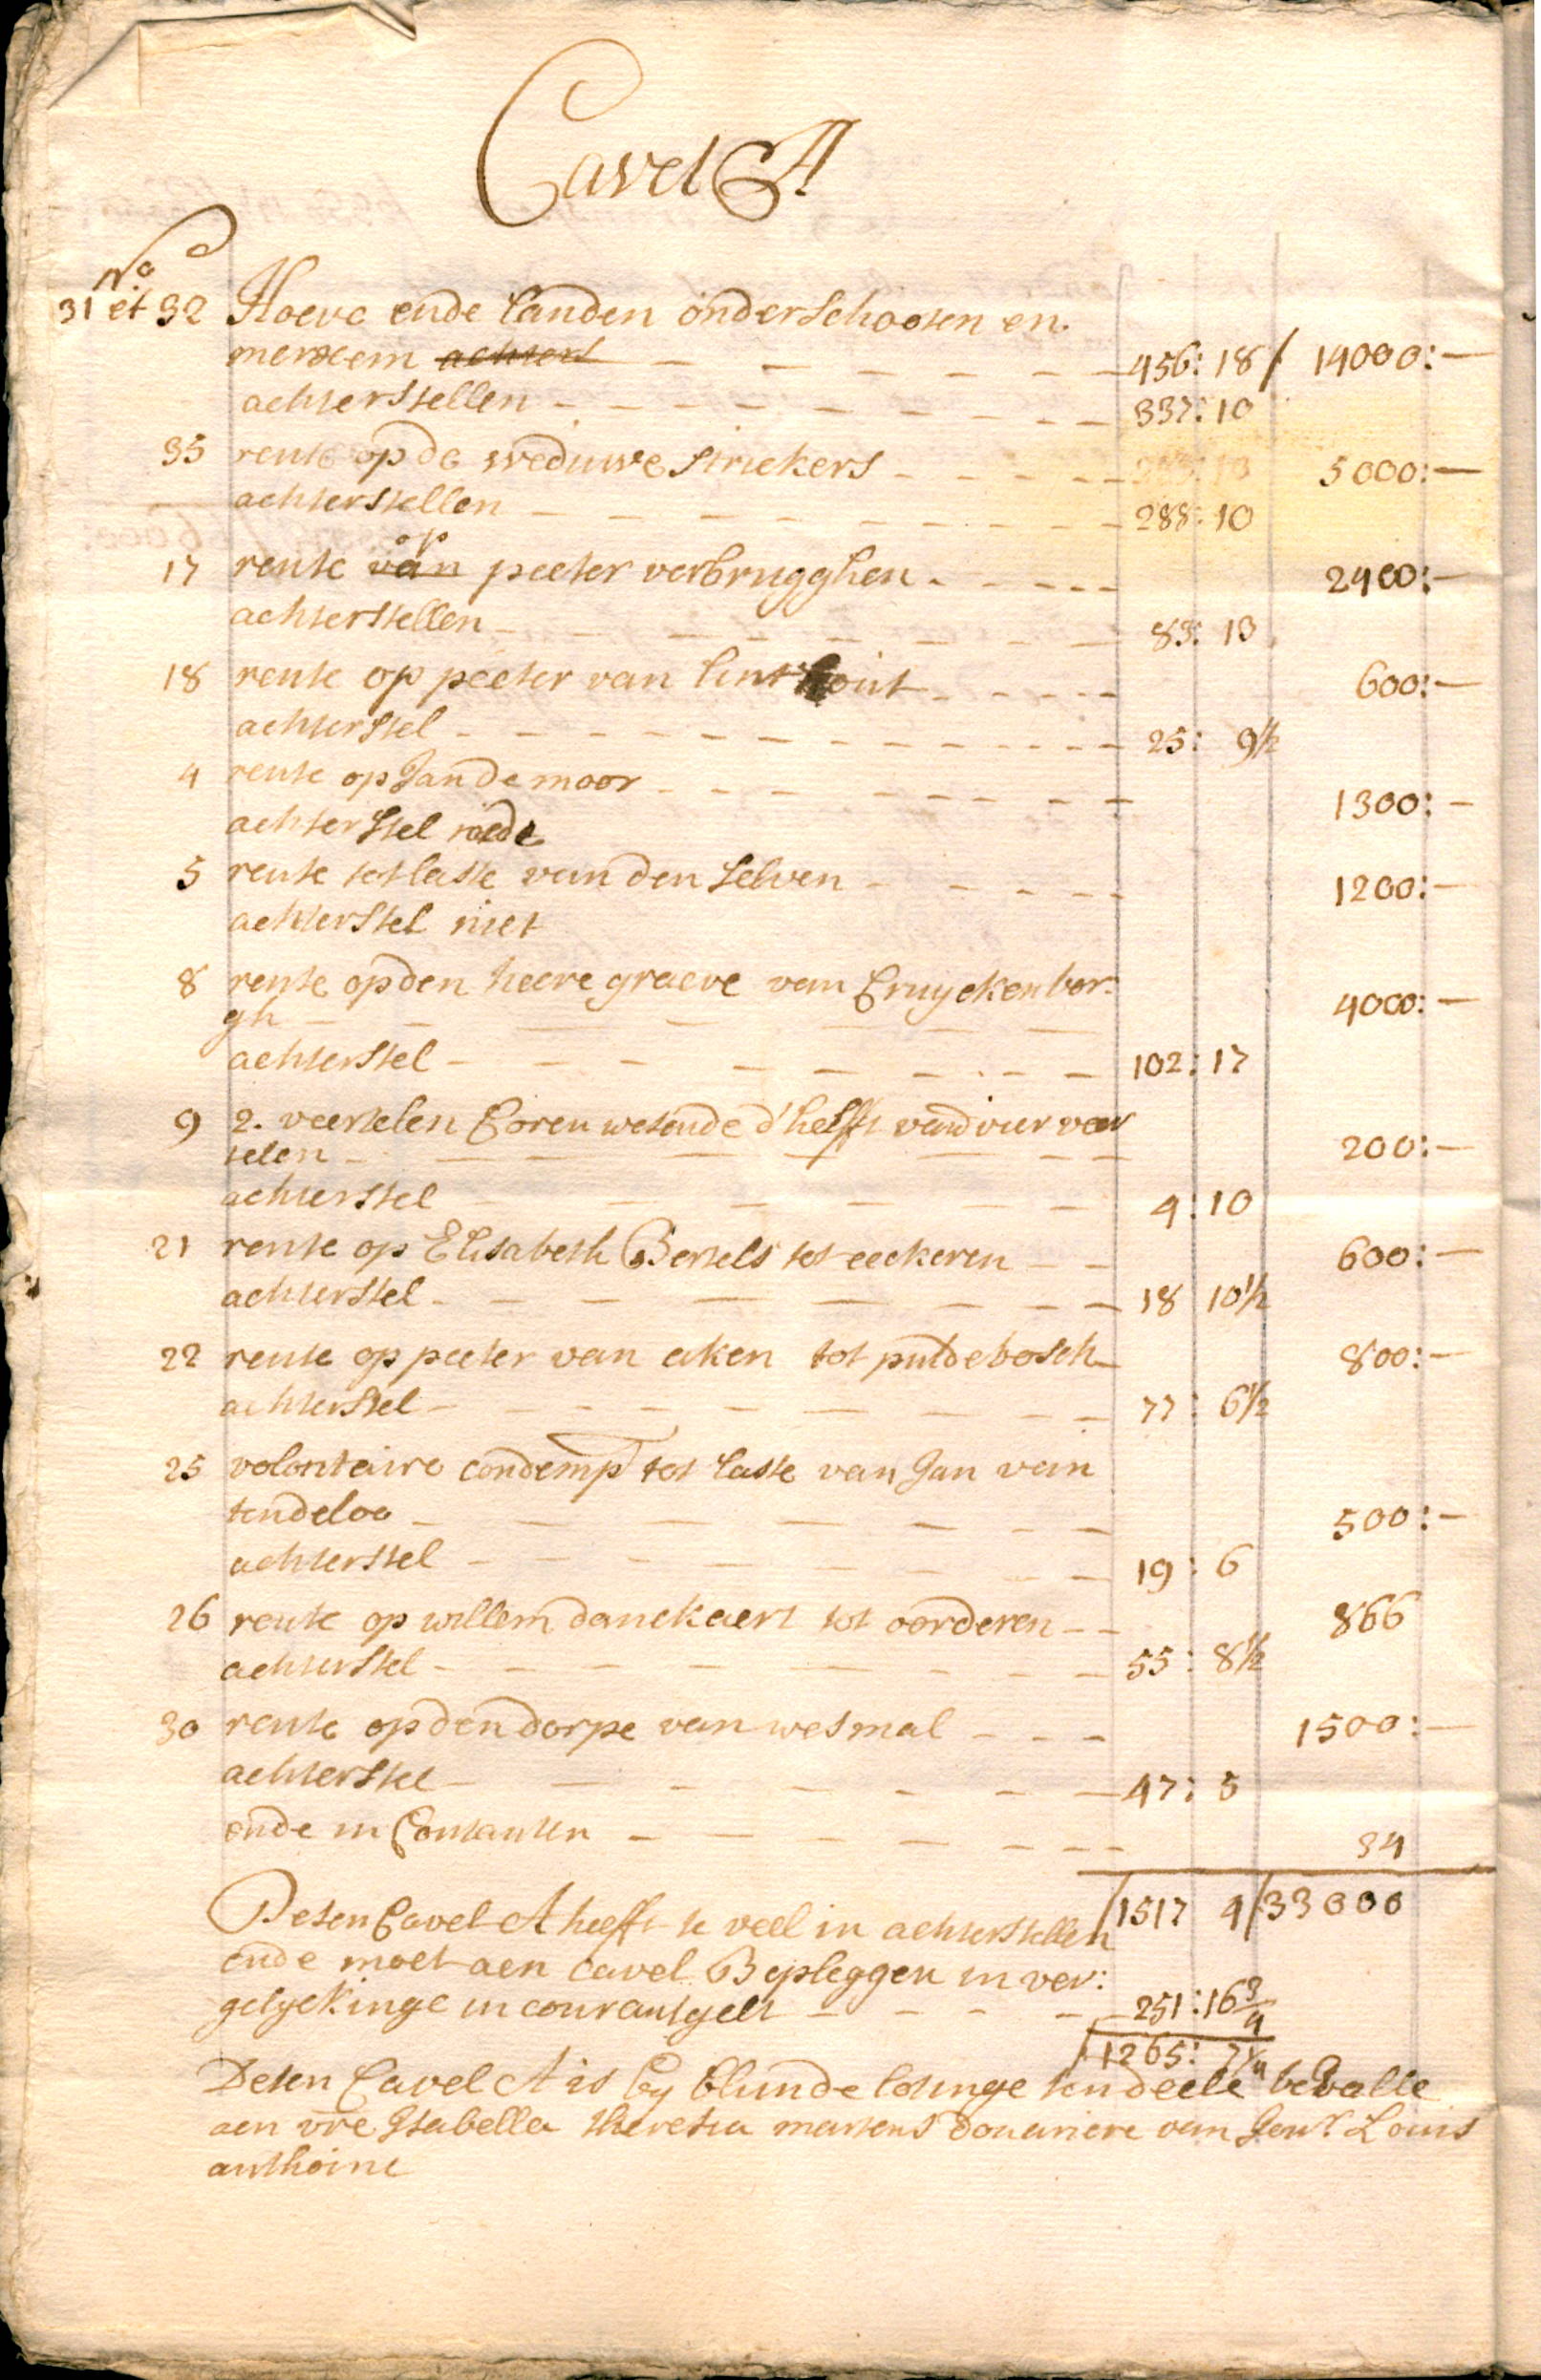 Cavel A
No
31 et 32 Hoeve ende landen onder schooten en
merxem achters — — — — — 456: 18 / 14000:—
achterstellen — — — — — — — — 337: 10
35 rente op de weduwe strickers — — — — — 5000:—
achterstellen — — — — — — — — 288: 10
op
17 rente van peeter verbrugghen — — — — 2400:—
achterstellen — — — — — — — — 83: 13
18 rente op peeter van linthout — — — — 600:—
achterstel — — — — — — — — — 25: 9½
4 rente op Jan de moor — — — — — — — 1300:—
achterstel niet
5 rente tot laste van den selven — — — — 1200:—
achterstel niet
8 rente op den heere graeve van Cruyckenbor:
gh — — — — — — — 4000:—
achterstel — — — — — — — 102: 17
9 2. veertelen Coren wesende d'helft vand vier veer
telen — — — — — — — 200:—
achterstel — — — — — — 4: 10
21 rente op Elisabeth Bertels tot eeckeren — — 600:—
achterstel — — — — — — — 18 10½
22 rente op peeter van aken tot putdebosch — 800:—
achterstel — — — — — — — — 77: 6½
25 volontaire condemp tot laste van Jan van
tendeloo — — — — — — — 500:—
achterstel — — — — — — — 19: 6
26 rente op willem danckaert tot oorderen — — 866
achterstel — — — — — — — 55: 8½
30 rente op den dorpe van wesmal — — — 1500:—
achterstel — — — — — — 47: 5
ende in Contanten — — — — — — — 34
1517 4 / 33000
Desen Cavel A heeft te veel in achterstellen
ende moet aen cavel B opleggen in ver:
gelyckinge in courantgelt — — — — — 251: 16¾
1265: 7¼
Desen Cavel A is by blinde lotinge ten deele bevalle
aen vre Isabella theresia martens douariere van Jonr Louis
anthoine